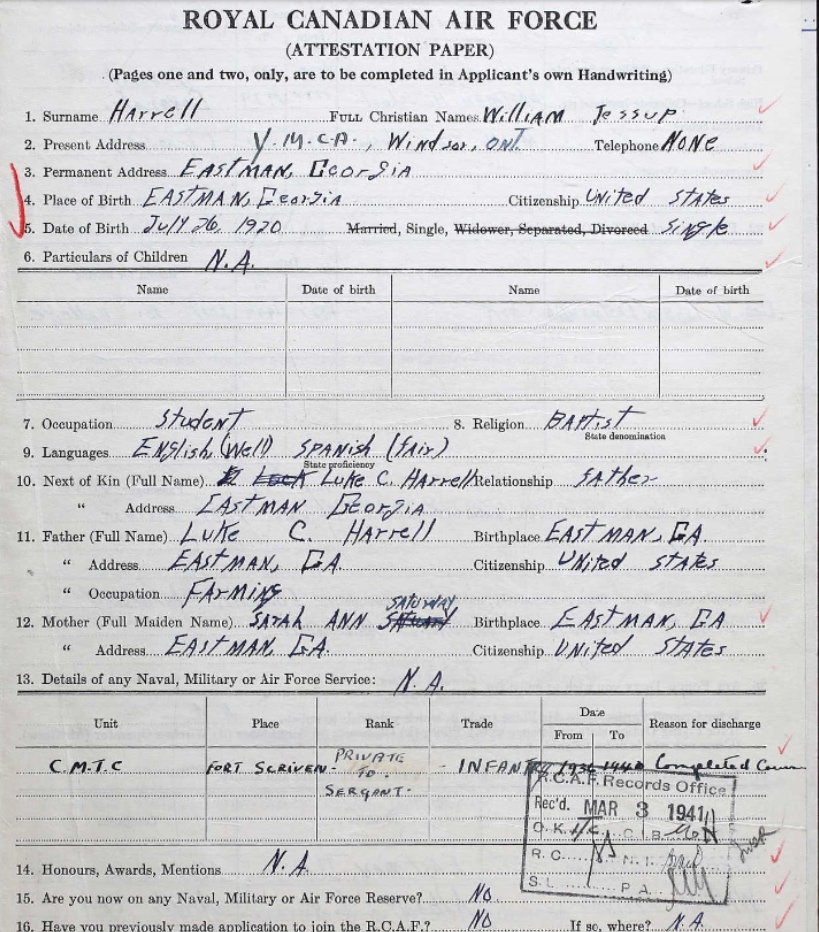 ROYAL CANADIAN AIR FORCE
(ATTESTATION PAPER)
(Pages one and two, only, are to be completed in Applicant's own Handwriting)
1. Surname Harrell FULL Christian Names William Jessup
2. Present Address Y.M.C.A., Windsor, ONT. Telephone NONE
3. Permanent Address EASTMAN, Georgia
4. Place of Birth EASTMAN, Georgia Citizenship United States
5. Date of Birth July 26, 1920 Married, Single, Widower, Separated, Divorced Single
6. Particulars of Children N.A.
Name Date of birth Name Date of birth
7. Occupation Student 8. Religion BAPTIST
State denomination
9. Languages ENGLISH (Well) SPANISH (fAir)
State proficiency
10. Next of Kin (Full Name) Luke C. Harrell Relationship fAther
" Address EASTMAN Georgia
11. Father (Full Name) Luke C. Harrell Birthplace EASTMAN, GA.
" Address EASTMAN, GA. Citizenship United States
" Occupation FArming
SATURDAY
12. Mother (Full Maiden Name) SArah ANN Birthplace EASTMAN, GA
" Address EASTMAN, GA. Citizenship United States
13. Details of any Naval, Military or Air Force Service: N.A.
Unit Place Rank Trade Date Reason for discharge
From To
C.M.T.C FORT SCRIVEN- PRIVATE - INFANTRY 1940 Completed
TO
SERGANT-
R.C.A.F. Records Office
Rec'd. MAR 3 1941
O.K. C.I.B.
R.C. N.I.
S.L. P.A.
14. Honours, Awards, Mentions N.A.
15. Are you now on any Naval, Military or Air Force Reserve? No
16. Have you previously made application to join the R.C.A.F.? No If so, where? N.A.